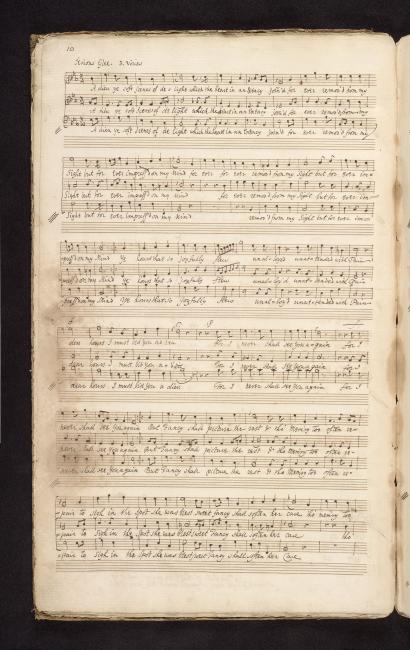 10
Serious Glee. 3. Voices
A dieu ye soft Scenes of de = light which the heart in an Extacy Join'd for ever remov'd from my
A dieu ye soft Scenes of de light which the heart in an Extacy Join'd for ever remov'd from my
A dieu ye soft Scenes of de light which the heart in an Extacy Join'd for ever remov'd from my
Sight but for ever impress'd on my Mind for ever for ever remov'd from my Sight but for ever im =
Sight but for ever impress'd on my Mind for ever remov'd from my Sight but for ever im-
Sight but for ever impress'd on my Mind remov'd from my Sight but for ever im-
press'd on my Mind Ye hours that so Joyfully flew unal = loy'd unat = tended with Pain
press'd on my Mind Ye hours that so Joyfully flew unal = loy'd unat = tended with Pain
press'd on my Mind Ye hours that so Joyfully flew unal = loy'd unat = tended with Pain
dear hours I must bid you a dieu For I never shall see you a = gain For I
dear hours I must bid you a dieu For I never shall see you again for I
dear hours I must bid you a dieu For I never shall see you again for I
never shall see you again But Fancy shall picture the rest & tho' Memory too often re -
never shall see you again But Fancy shall picture the rest & tho Memory too often re -
never shall see you again But Fancy shall picture the rest & tho Memory too often re -
= pair to Sigh in the Spot she was blest sweet fancy shall soften her Care tho memory too
- pair to Sigh in the Spot she was blest sweet Fancy shall soften her Care tho
- pair to Sigh in the Spot she was blest sweet Fancy shall soften her Care